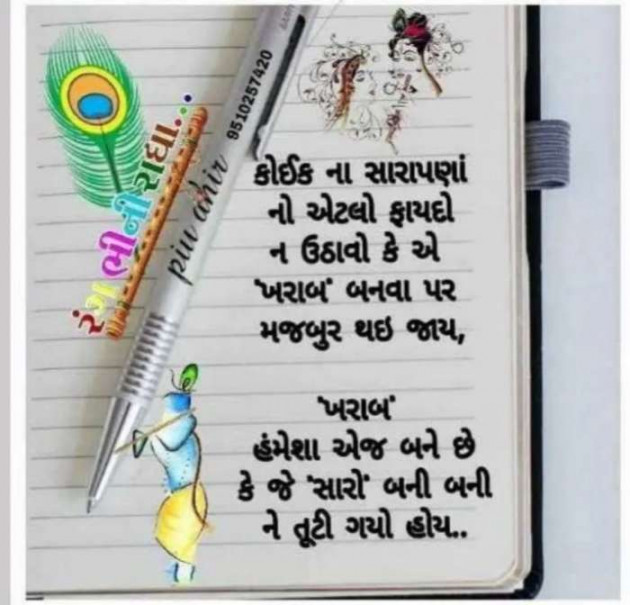 રંગ ભીની રાધા...
piu ahir
9510257420
કોઈક ના સારાપણાં
નો એટલો ફાયદો
ન ઉઠાવો કે એ
"ખરાબ" બનવા પર
મજબુર થઇ જાય,
"ખરાબ"
હંમેશા એજ બને છે
કે જે "સારો" બની બની
ને તૂટી ગયો હોય..